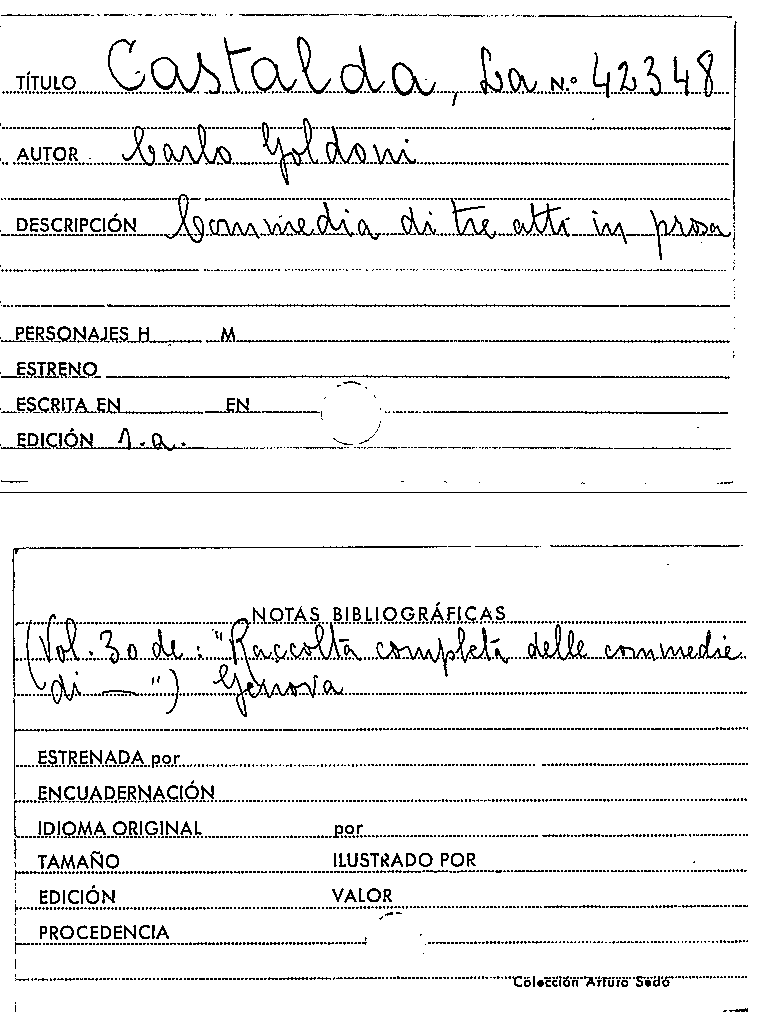 TÍTULO Castalda, La N.º 42348
AUTOR Carlo Goldoni
DESCRIPCIÓN Commedia di tre atti in prosa
PERSONAJES H M
ESTRENO
ESCRITA EN EN
EDICIÓN s.a.
NOTAS BIBLIOGRÁFICAS
(Vol. 30 de: "Raccolta completa delle commedie
di — ") Genova
ESTRENADA por
ENCUADERNACIÓN
IDIOMA ORIGINAL por
TAMAÑO ILUSTRADO POR
EDICIÓN VALOR
PROCEDENCIA
Colección Arturo Sedó